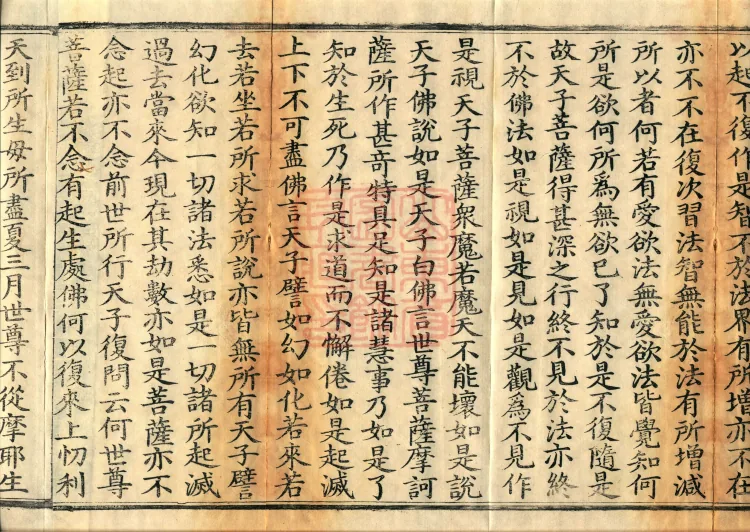 以起不復作是智不於法界有所增亦不在
亦不不在復次習法智無能於法有所增減
所以者何若有愛欲法無愛欲法皆覺知何
所是欲何所爲無欲已了知於是不復隨是
故天子菩薩得甚深之行終不見於法亦終
不於佛法如是視如是見如是觀爲不見作
是視天子菩薩衆魔若魔天不能壞如是說
天子佛說如是天子白佛言世尊菩薩摩訶
薩所作甚奇特具足知是諸慧事乃如是了
知於生死乃作是求道而不懈倦如是起滅
上下不可盡佛言天子譬如幻如化若來若
去若坐若所求若所說亦皆無所有天子譬
幻化欲知一切諸法悉如是一切諸所起滅
過去當來今現在其劫數亦如是菩薩亦不
念起亦不念前世所行天子復問云何世尊
菩薩若不念有起生處佛何以復來上忉利
天到所生母所盡夏三月世尊不從摩耶生